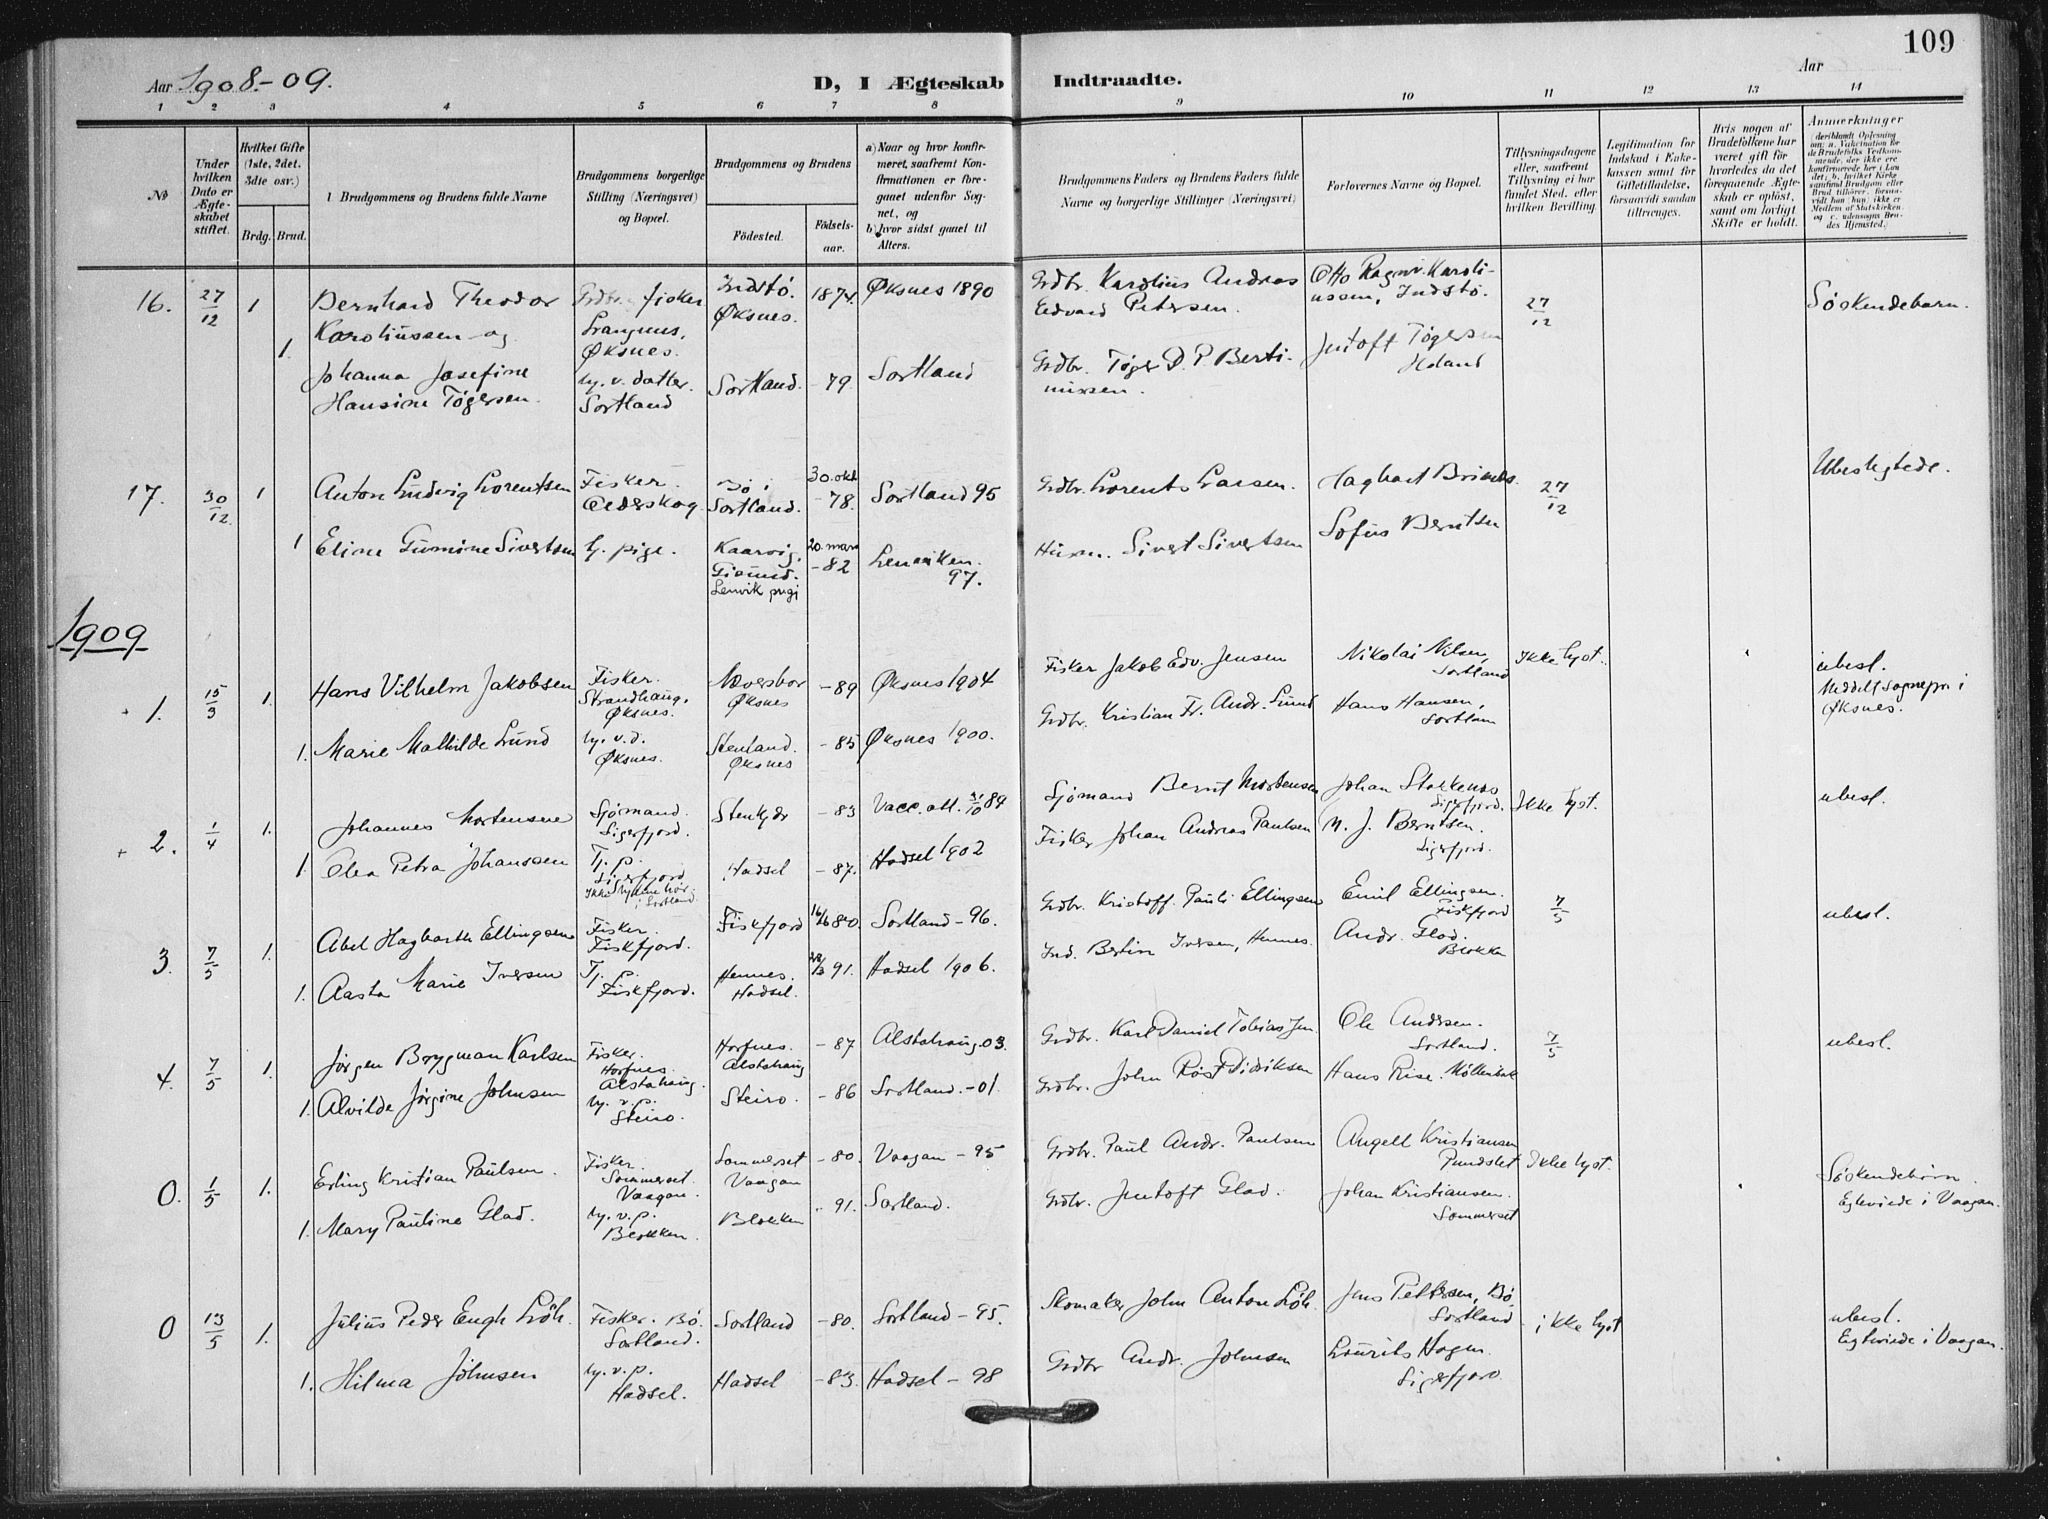 109
Aar 1908-09.
D, I Ægteskab Indtraadte.
Aar
1 2 3 4 5 6 7 8 9 10 11 12 13 14
No
Under hvilken Dato er Ægteskabet stiftet.
Hvilket Gifte (1ste, 2det, 3die osv.)
Brdg. Brud.
1 Brudgommens og Brudens fulde Navne
Brudgommens borgerlige Stilling (Næringsvei) og Bopæl.
Brudgommens og Brudens
Fødested. Fødselsaar.
a) Naar og hvor konfirmeret, saafremt Konfirmationen er foregaaet udenfor Sognet, og
b) hvor sidst gaaet til Alters.
Brudgommens Faders og Brudens Faders fulde Navne og borgerlige Stillinger (Næringsvei)
Forlovernes Navne og Bopæl.
Tillysningsdagene eller, saafremt Tillysning ei har fundet Sted, efter hvilken Bevilling
Legitimation for Indskud i Enkekassen samt for Giftetilladelse, forsaavidt saadan tiltrænges.
Hvis nogen af Brudefolkene har været gift før hvorledes da det foregaaende Ægteskab er opløst, samt om lovligt Skifte er holdt.
Anmærkninger
(deriblandt Oplysning om: a. Vakcination for de Brudefolks Vedkommende, der ikke ere konfirmerede her i Landet; b. hvilket Kirkesamfund Brudgom eller Brud tilhører, forsaavidt han (hun) ikke er Medlem af Statskirken og c. udensogns Brudes Hjemsted.)
16. 27/12 1 Bernhard Theodor Grdbr. fisker Indstø. 1874. Øksnes 1890 Grdbr. Karolius Andreas Otto Ragnv. Karoli- 27/12 Söskendebarn.
Karoliussen og Langnus, Øksnes. Edvard Petersen. ussen, Indstø.
1. Øksnes. Jentoft Tøgersen
Johanna Josefine hj. v. datter. Sortland. -79. Sortland Grdbr. Tøger D. P. Berti- Holand
Hansine Tøgersen. Sortland nussen.
17. 30/12 1 Anton Ludvig Lorentsen Fisker. Bø i 30. okt -78. Sortland 95 Grdbr. Lorents Larsen. Hagbart 27/12 Ubeslegtede.
Sortland.
1 Eline Sivertsen tj. pige. 20. mars -82 Lenviken. 97. Sivert Sivertsen Sofus Berntsen
Lenvik
1909
1. 15/3 1. Hans Vilhelm Jakobsen Fisker. -89 Øksnes 1904 Fisker Jakob Edv. Jensen Nikolai Nilsen, Ikke lyst. ubesl.
Strandhaug, Øksnes Sortland Meddelt sognepr. i
Øksnes. Øksnes.
1. Marie Mathilde Lund hj. v. d. Stenland. -85 Øksnes 1900. Grdbr. Kristian Fr. Andr. Lund Hans Hansen,
Øksnes. Øksnes Sortland
2. 1/4 1. Johannes Mortensen Sjømand. -83 Vacc. att. 84 Sjømand Bernt Mortensen Johan Stokkenes Ikke lyst. ubesl.
Sigerfjord. Sigerfjord.
1 Olea Petra Johanssen Tj. p. Hadsel -87. Hadsel 1902 Fisker Johan Andreas Paulsen M. J. Berntsen.
Sigerfjord Sigerfjord.
Ikke
i Sortland.
3. 7/5 1. Abel Hagbarth Ellingsen Fisker. Fiskfjord 80. Sortland -96. Grdbr. Kristoff. Ellingsen Emil Ellingsen. 7/5 ubesl.
Fiskfjord. Fiskfjord
1. Aasta Marie Iversen Tj. p. Hennes. 91. Hadsel 1906. Ind. Bertin Iversen, Hennes. Andr. Glad.
Fiskfjord. Hadsel. Blokken
4. 7/5 1. Jørgen Brygman Karlsen Fisker. -87 Alstahaug. 03. Grdbr. Karl Daniel Tobias Ole Andersen. 7/5 ubesl.
Alstahaug. Alstahaug Sortland.
1. Alvilde Jørgine Johnsen hj. v. p. Steiro. -86 Sortland. -01. Grdbr. John Røst Didriksen Hans Rise.
Steiro.
0. 1/5 1. Erling Kristian Paulsen. Fisker. Sommerset -80. Vaagan -95 Grdbr. Paul Andr. Paulsen Angell Kristiansen Ikke lyst. Söskendebörn.
Sommerset Vaagan Pundslet Egteviede i Vaagan.
Vaagan.
1. Mary Pauline Glad. hj. v. p. Blokken 91. Sortland. Grdbr. Jentoft Glad. Johan Kristiansen.
Blokken. Sommerset
0 13/5 1. Julius Peder Engh Løh. Fisker. Bø. Sortland -80. Sortland -95. Skomaker John Anton Løh. Jens Pettersen, Bø, ikke lyst ubesl.
Sortland. Sortland Egteviede i Vaagan.
1. Hilma Johnsen hj. v. p. Hadsel -83. Hadsel -98 Grdbr Andr. Johnsen Laurits Hagen.
Hadsel. Sigerfjord